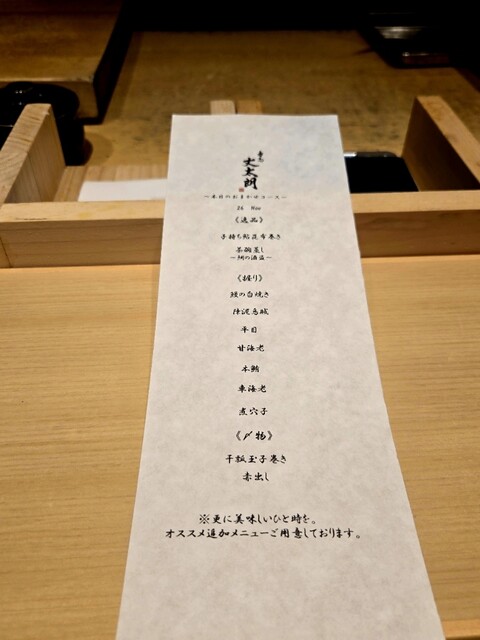 丈太朗
～本日のおまかせコース～
26 Nov
《逸品》
子持ち鮎昆布巻き
茶碗蒸し
《握り》
鰻の白焼き
障泥烏賊
平目
甘海老
本鮪
車海老
煮穴子
《〆物》
干瓢玉子巻き
赤出し
※更に美味しいひと時を。
オススメ追加メニューご用意しております。